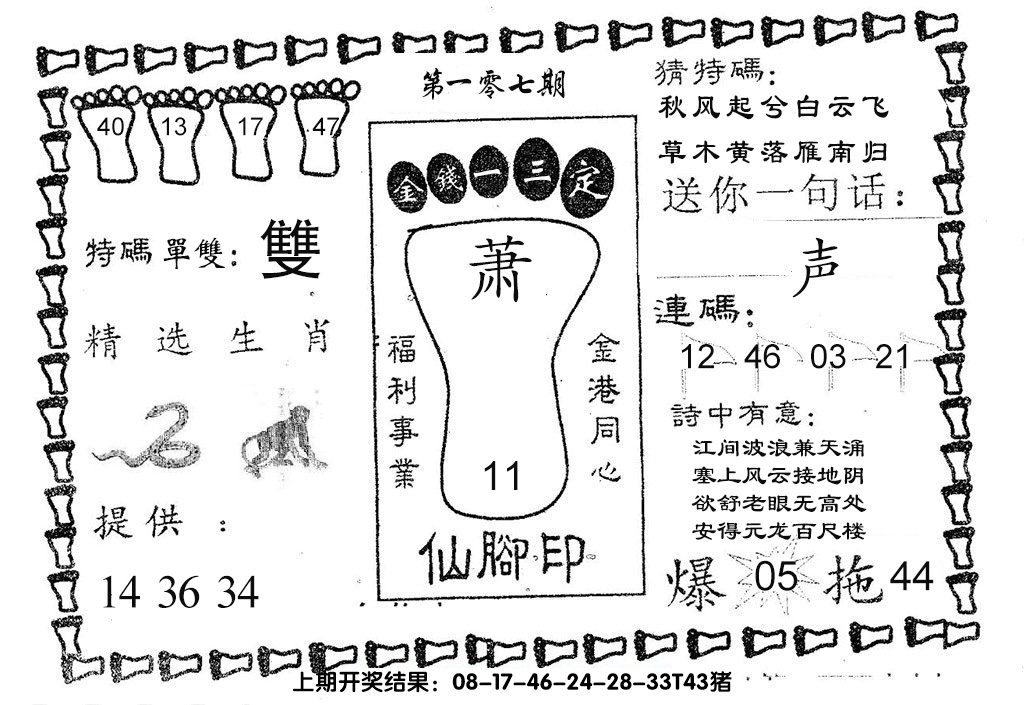 第一零七期
40 13 17 47
特碼單雙：雙
精选生肖
提供：
14 36 34
金錢一三定
萧
福利事業
金港同心
11
仙腳印
猜特碼：
秋风起兮白云飞
草木黄落雁南归
送你一句话：
声
連碼：
12 46 03 21
詩中有意：
江间波浪兼天涌
塞上风云接地阴
欲舒老眼无高处
安得元龙百尺楼
爆 05 拖 44
上期开奖结果：08-17-46-24-28-33T43猪